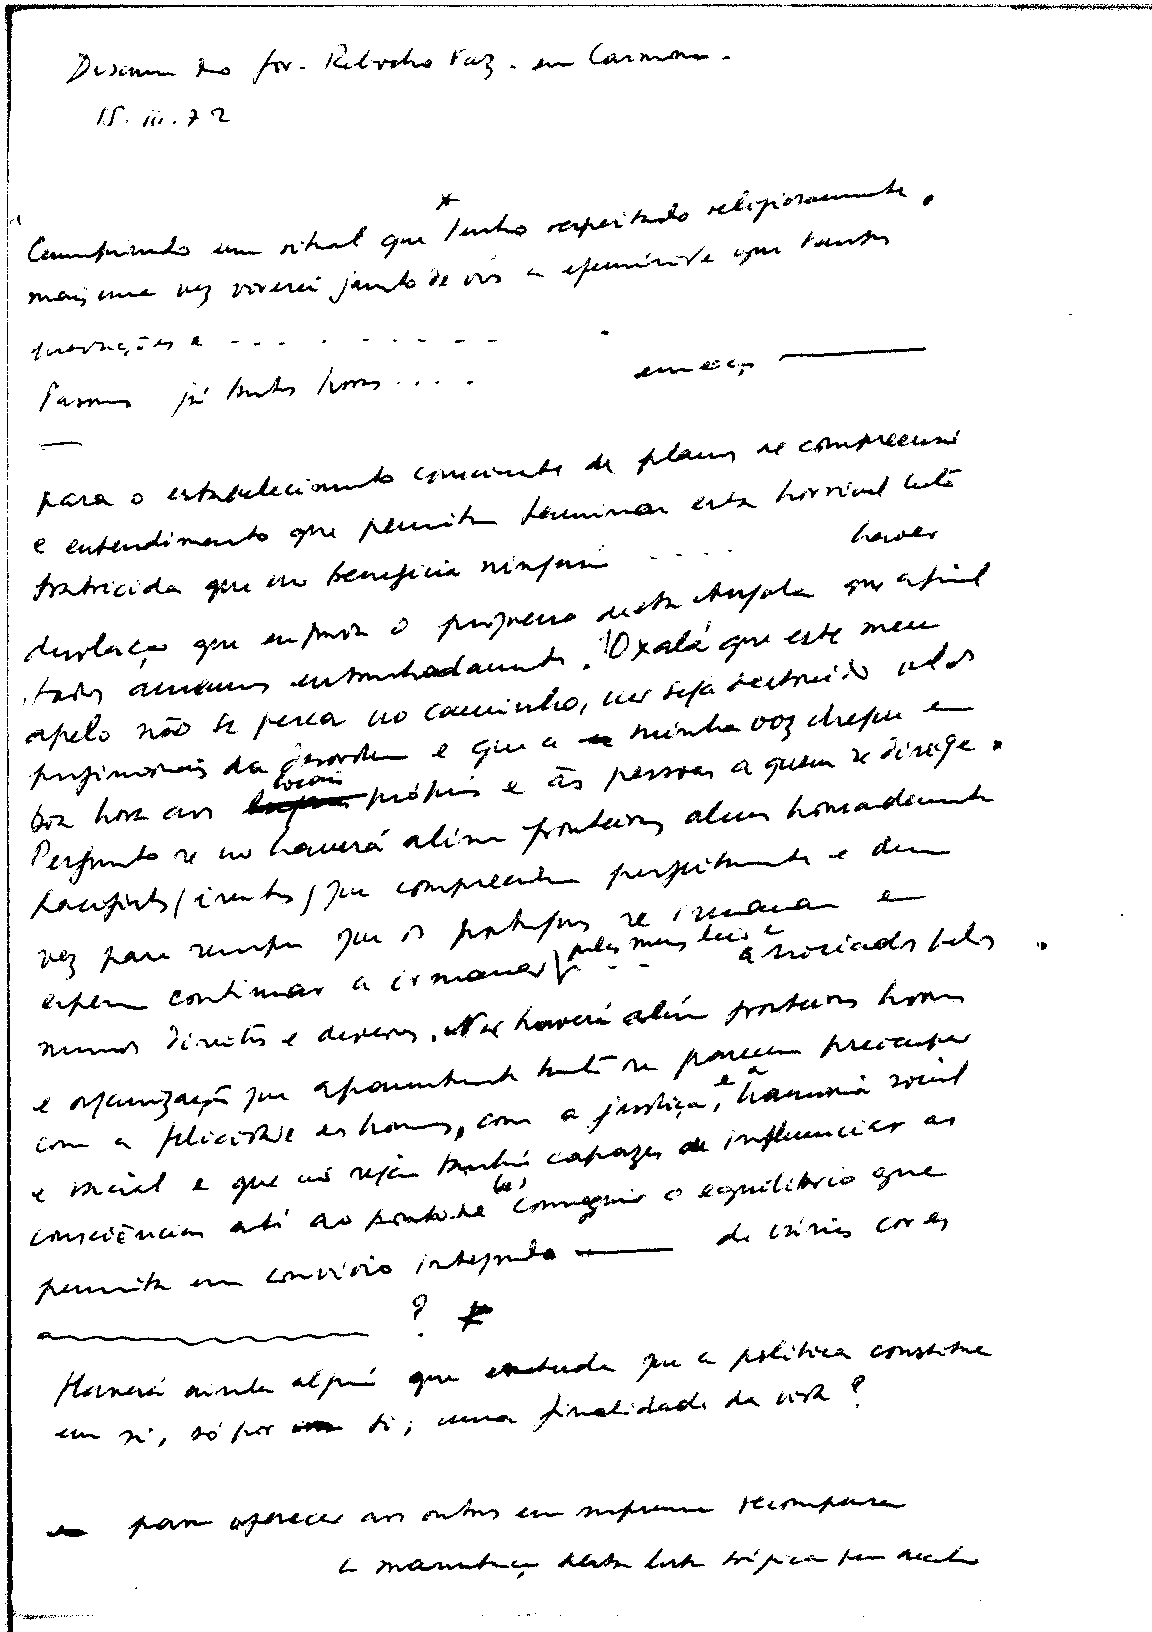 Discurso do Gov. Rebocho Vaz. em Carmona.
15.III.72
Cumprindo um ritual que tenho respeitado religiosamente,
mais uma vez viverei junto de vós a efeméride que tantas
provações e - - - - - - - - -
Passam já tantas horas . . . .
para o estabelecimento consciente de planos de compreensão
e entendimento que permita terminar esta horrível luta
fratricida que não beneficia ninguém . . . . . haver
desolação que entrava o progresso desta Angola que afinal
todos amamos entranhadamente. Oxalá que este meu
apelo não se perca no caminho, não seja destruído pelos
profissionais da desordem e que a minha voz chegue em
boa hora aos locais próprios e às pessoas a quem se dirige.
Pergunto se não haverá além fronteiras alguns honradamente
que compreendam perfeitamente e duma
vez para sempre que os portugueses se irmanam e
esperam continuar a irmanar pelos mesmos associados pelos
mesmos direitos e deveres. Não haverá além fronteiras homens
e organizações que aparentemente tanto se parecem preocupar
com a felicidade dos homens, com a justiça, e a harmonia social
e racial e que não sejam também capazes de influenciar as
consciências até ao ponto de conseguir o equilíbrio que
permita um convívio integrado de várias cores
?
Haverá ainda alguém que entenda que a política constitue
em si, só por si, uma finalidade da vida?
para oferecer aos outros em suprema recompensa
a desta luta trágica sem